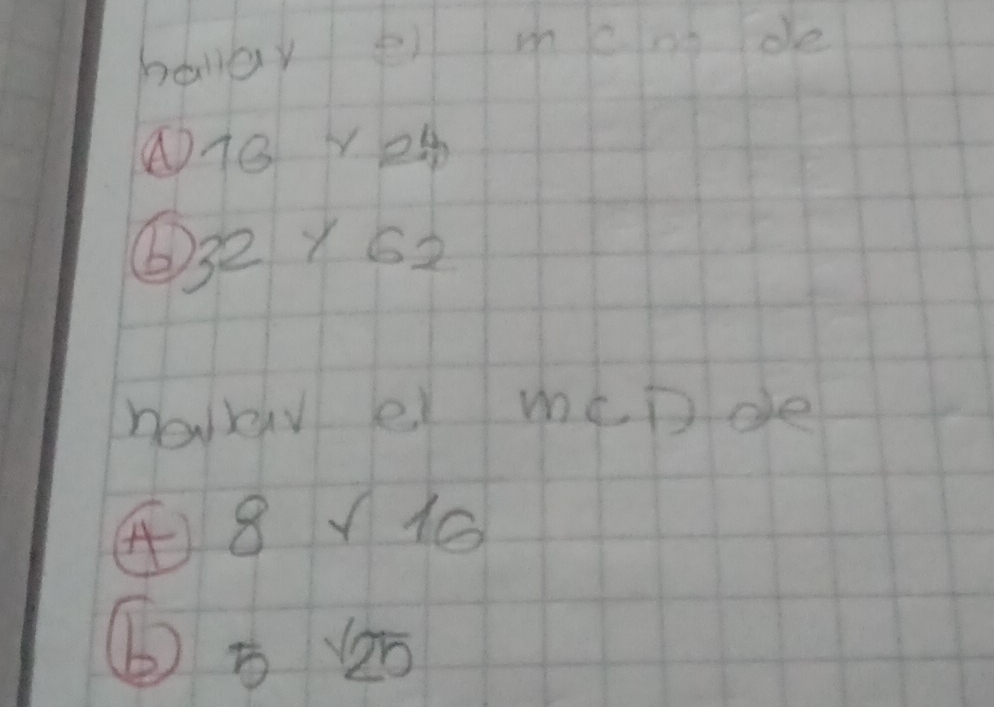 hallar el mcm de
A) 16 y 24
b) 32 y 62
hallar el mcD de
A) 8 y 16
b) 5 y 25